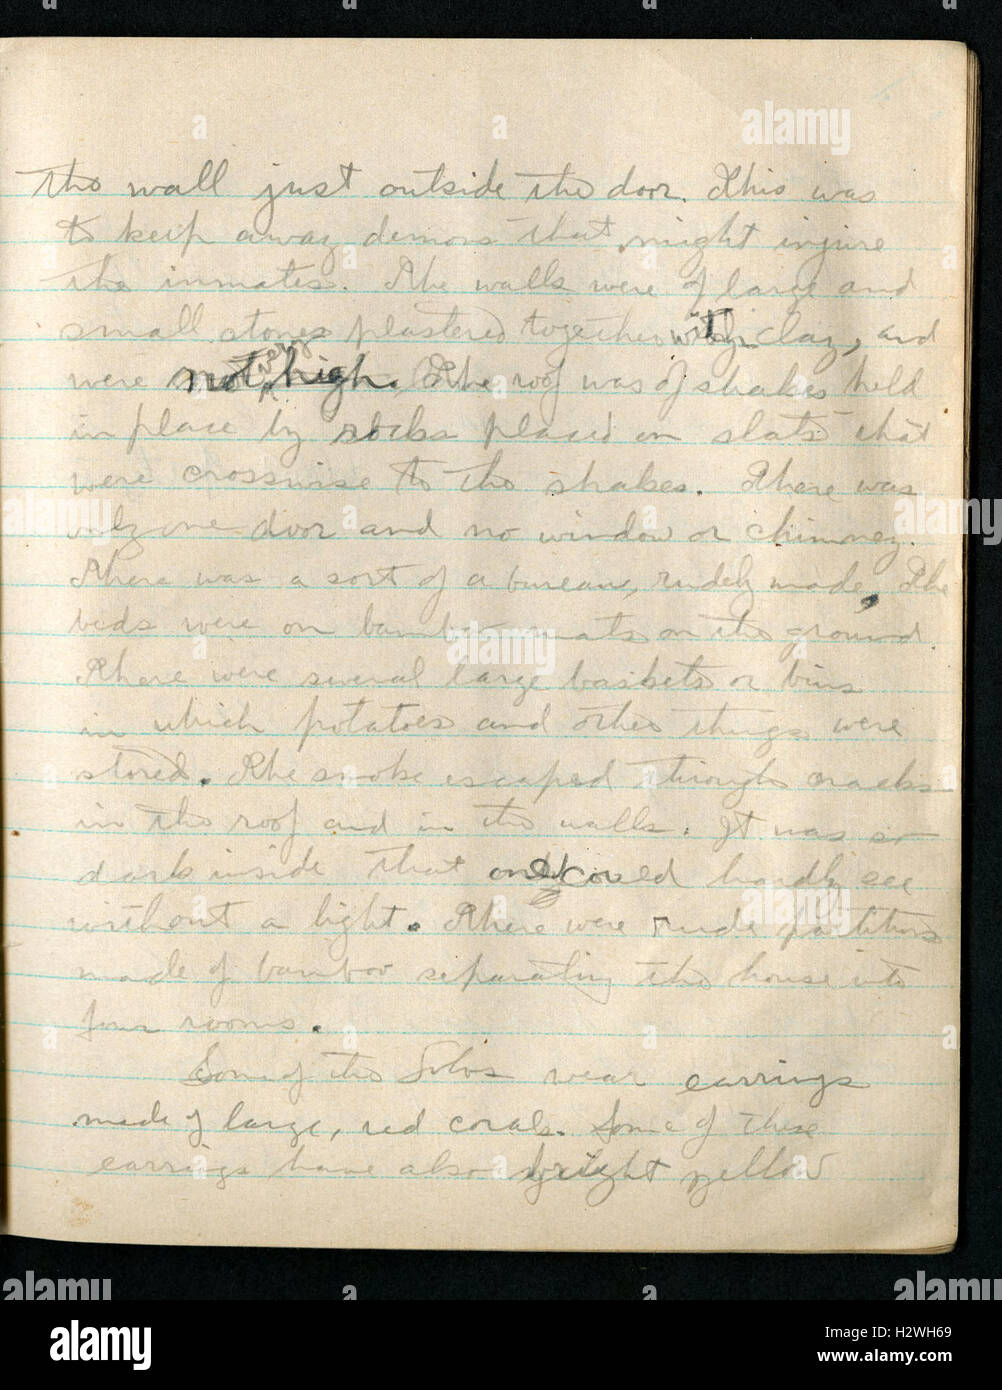 the wall just outside the door. This was
to keep away demons that might injure
the inmates. The walls were of large and
small stones plastered together with clay, and
were not very high. The roof was of shakes held
in place by rocks placed on slats that
were crosswise to the shakes. There was
only one door and no window or chimney.
There was a sort of a bureau, rudely made, The
beds were on bamboo mats on the ground
There were several large baskets or bins
in which potatoes and other things were
stored. The smoke escaped through cracks
in the roof and in the walls. It was so
dark inside that one could hardly see
without a light. There were rude partitions
made of bamboo separating the house into
four rooms.
Some of the Lolos wear earrings
made of large, red corals. Some of these
earrings have also bright yellow
alamy
alamy
Image ID: H2WH69
www.alamy.com